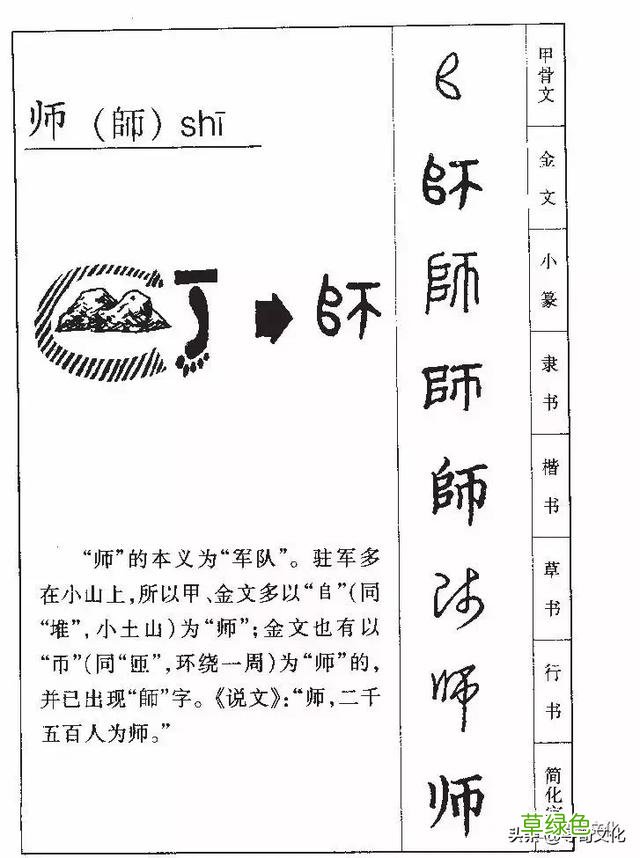 师（師）shī
師
“师”的本义为“军队”。驻军多
在小山上，所以甲、金文多以“𠂤”（同
“堆”，小土山）为“师”；金文也有以
“帀”（同“匝”，环绕一周）为“师”的，
并已出现“師”字。《说文》：“师，二千
五百人为师。”
𠂤 甲骨文
師 金文
師 小篆
師 隶书
師 楷书
师 草书
师 行书
师 简化字
草绿色